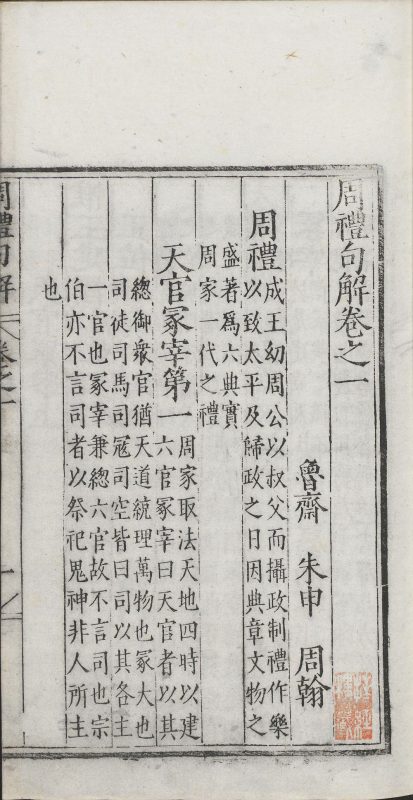 周禮句解卷之一
魯齋 朱申 周翰
周禮 成王幼周公以叔父而攝政制禮作樂
以致太平及歸政之日因典章文物之
盛著為六典實
周家一代之禮
天官冢宰第一 周家取法天地四時以建
六官冢宰曰天官者以其
總御衆官猶天道統理萬物也冢大也
司徒司馬司寇司空皆曰司以其各主
一官也冢宰兼總六官故不言司也宗
伯亦不言司者以祭祀鬼神非人所主
也
周禮句解 卷之一 一